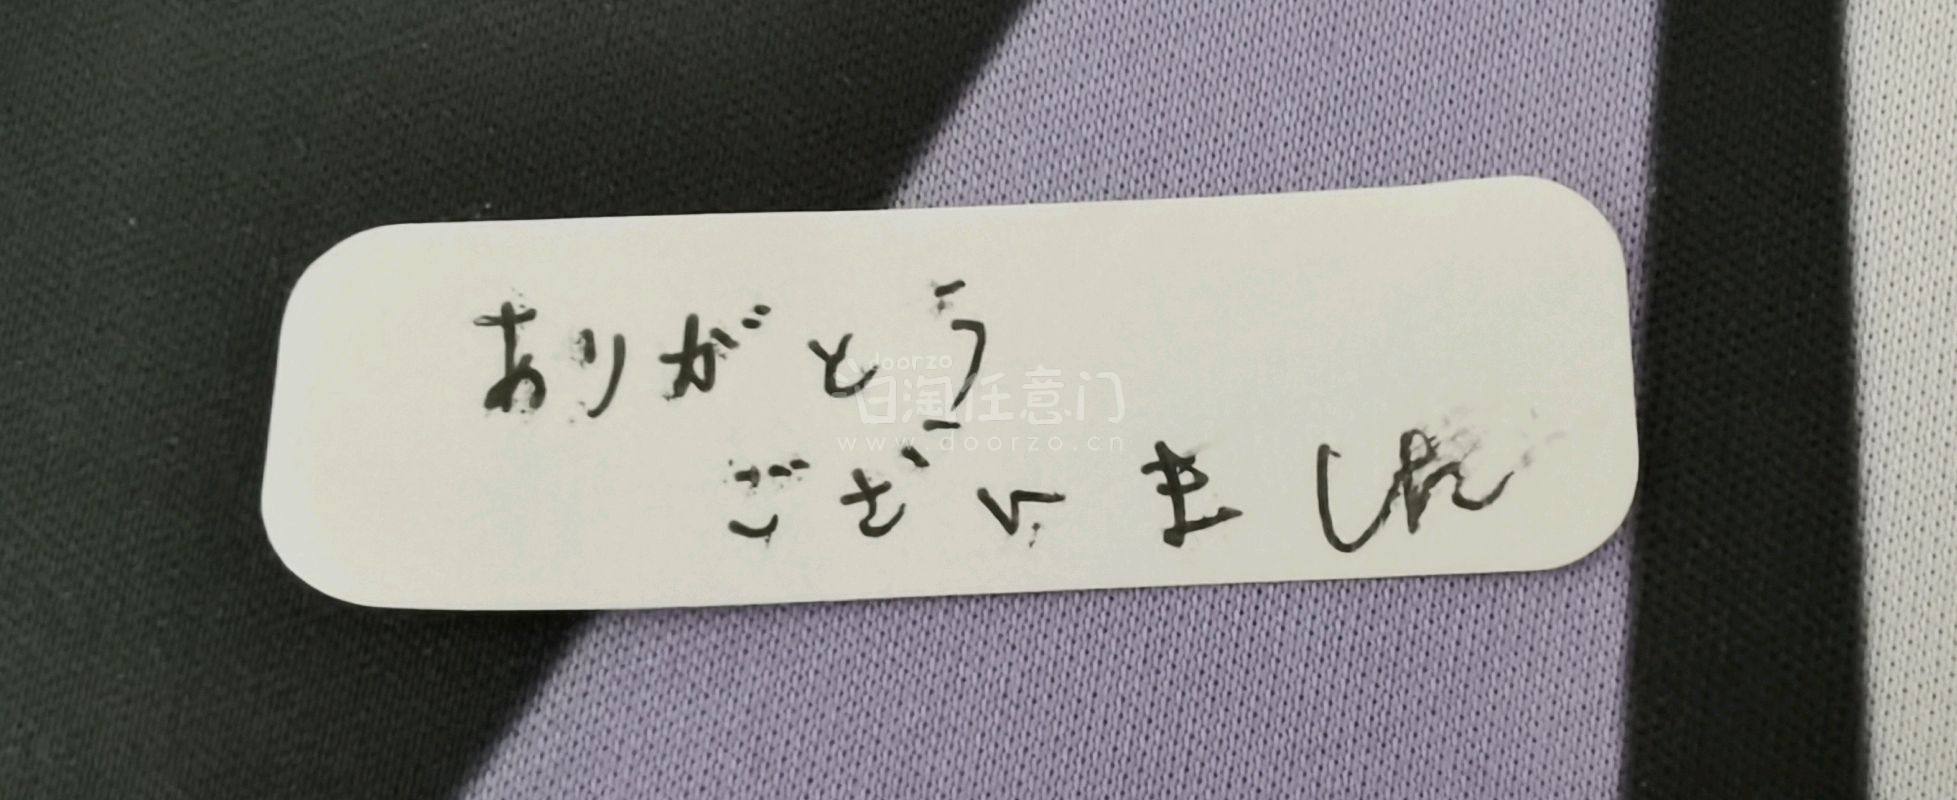 ありがとう
ございました
doorzo
日淘任意门
www.doorzo.cn